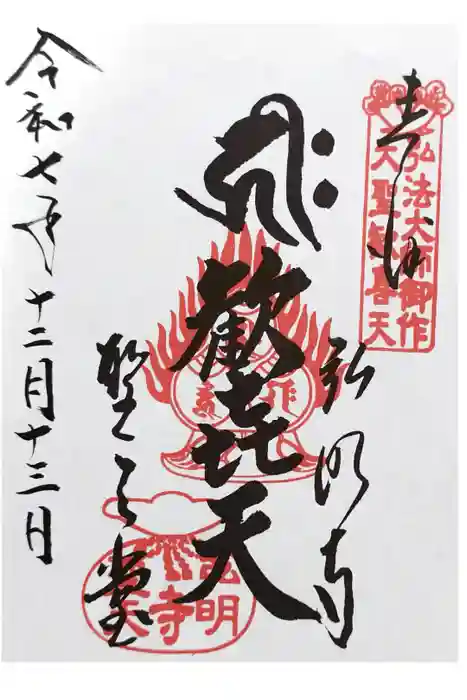 奉拝
弘法大師御作
大聖歓喜天
弘明寺
歓喜天
聖天堂
令和七年十二月十三日